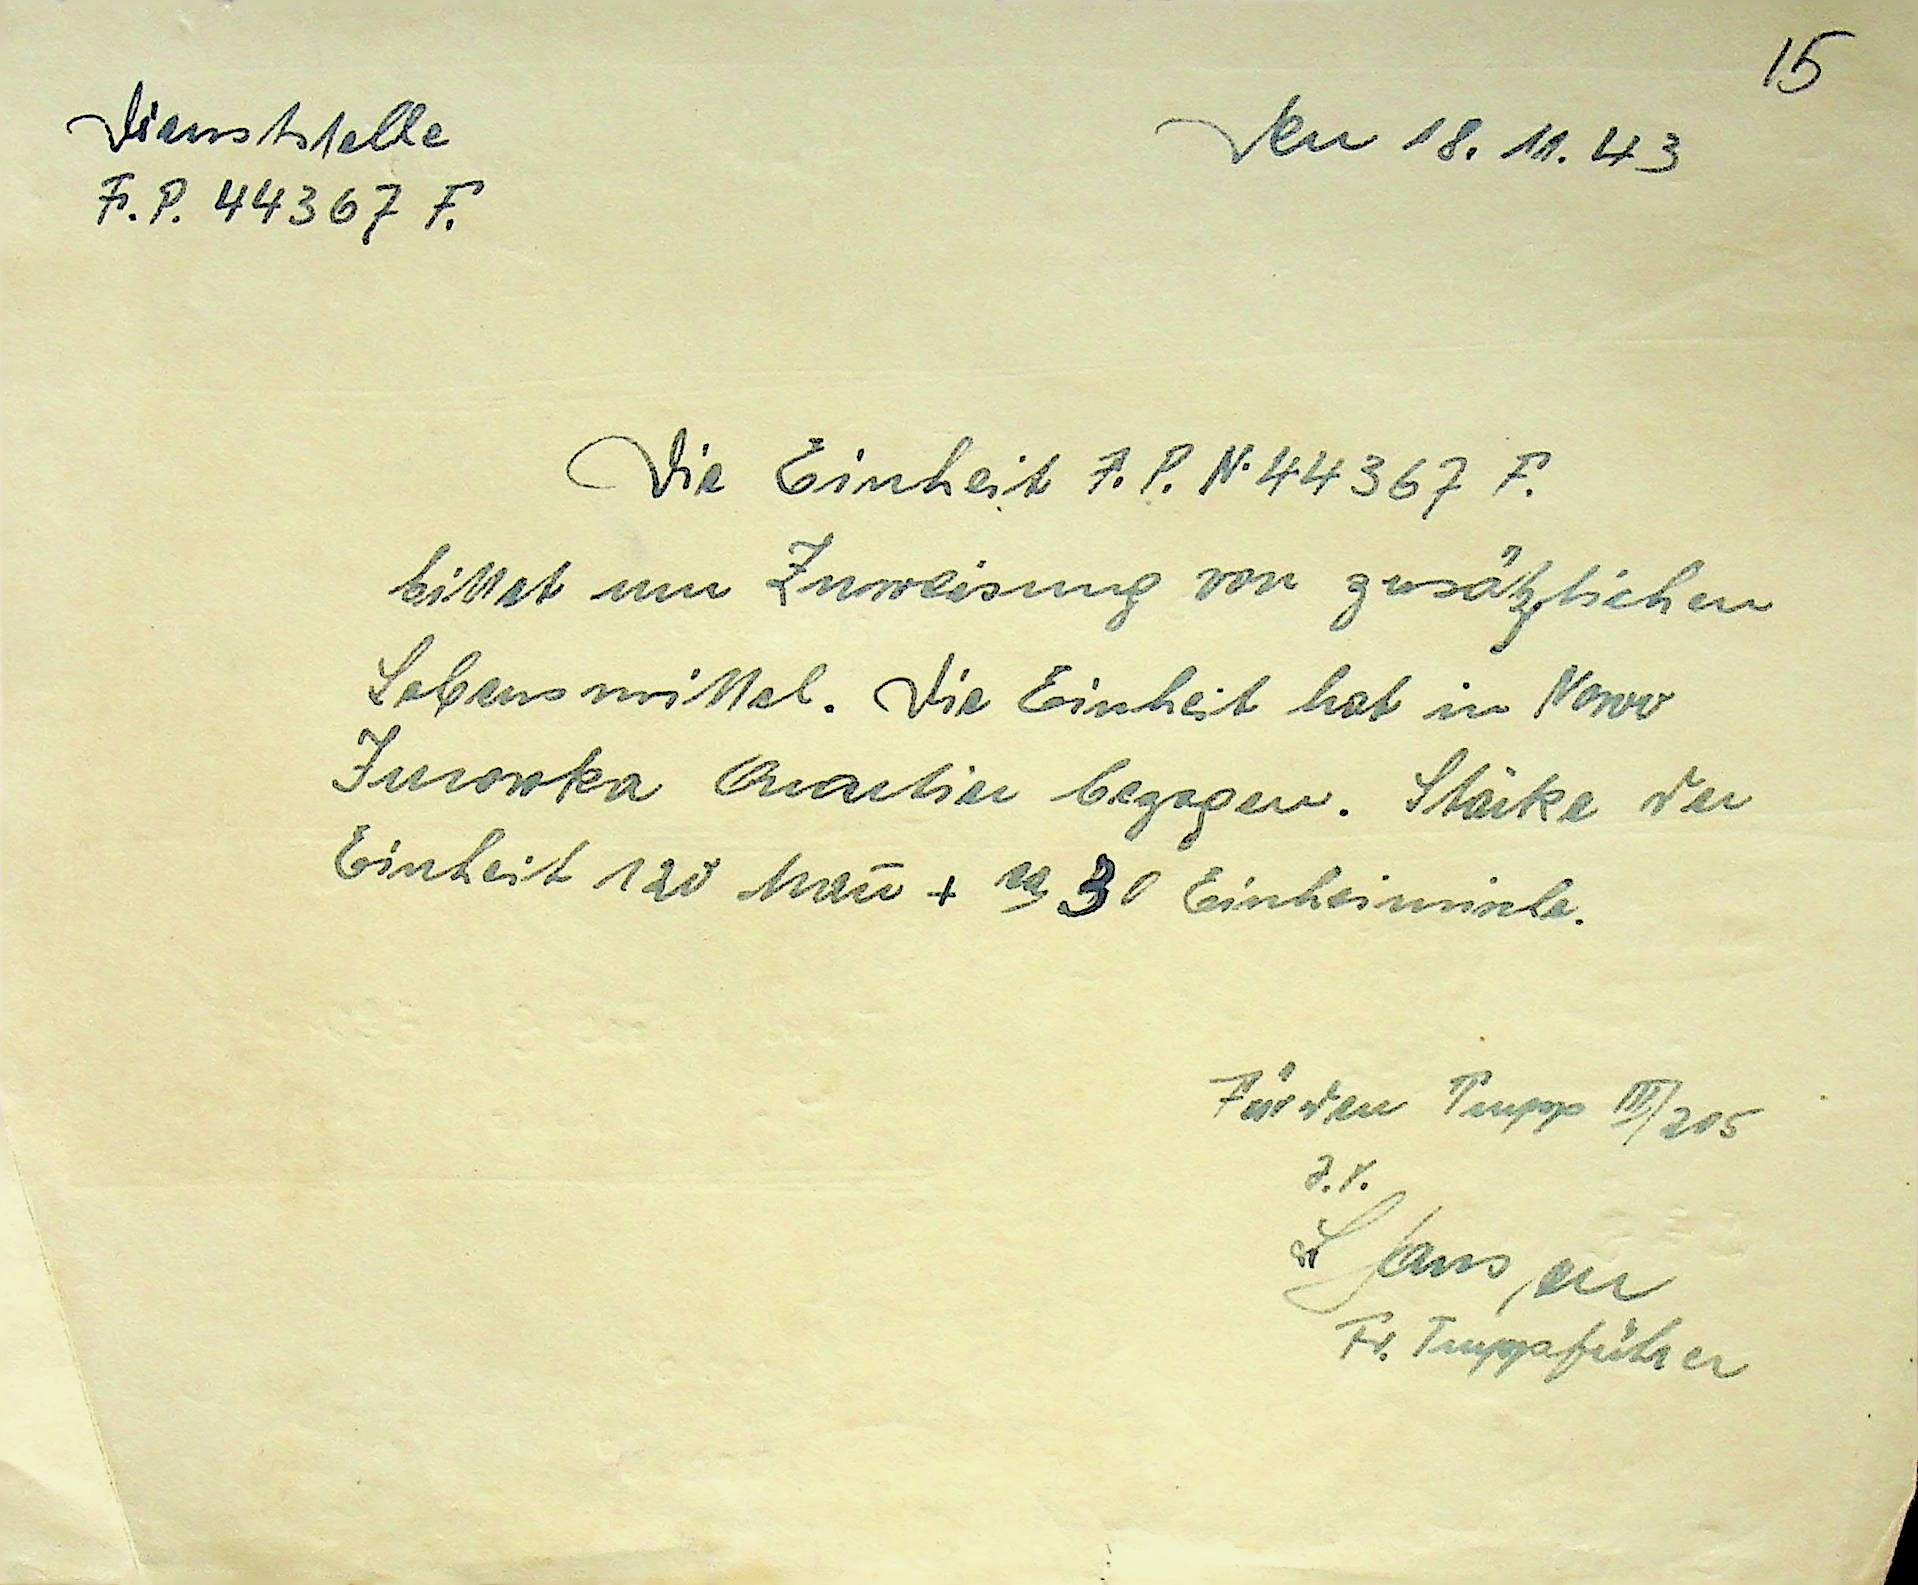 15
Dienststelle
Den 18. 11. 43
F. P. 44367 F.
Die Einheit F. P. N. 44367 F.
bittet um Zuweisung von zusätzlichen
Lebensmittel. Die Einheit hat in Nowo
Quartier bezogen. Stärke der
Einheit 120 Mann + ca 30 Einheimische.
Für den Trupp III/205
I. V.
Jansen
Fr. Truppführer